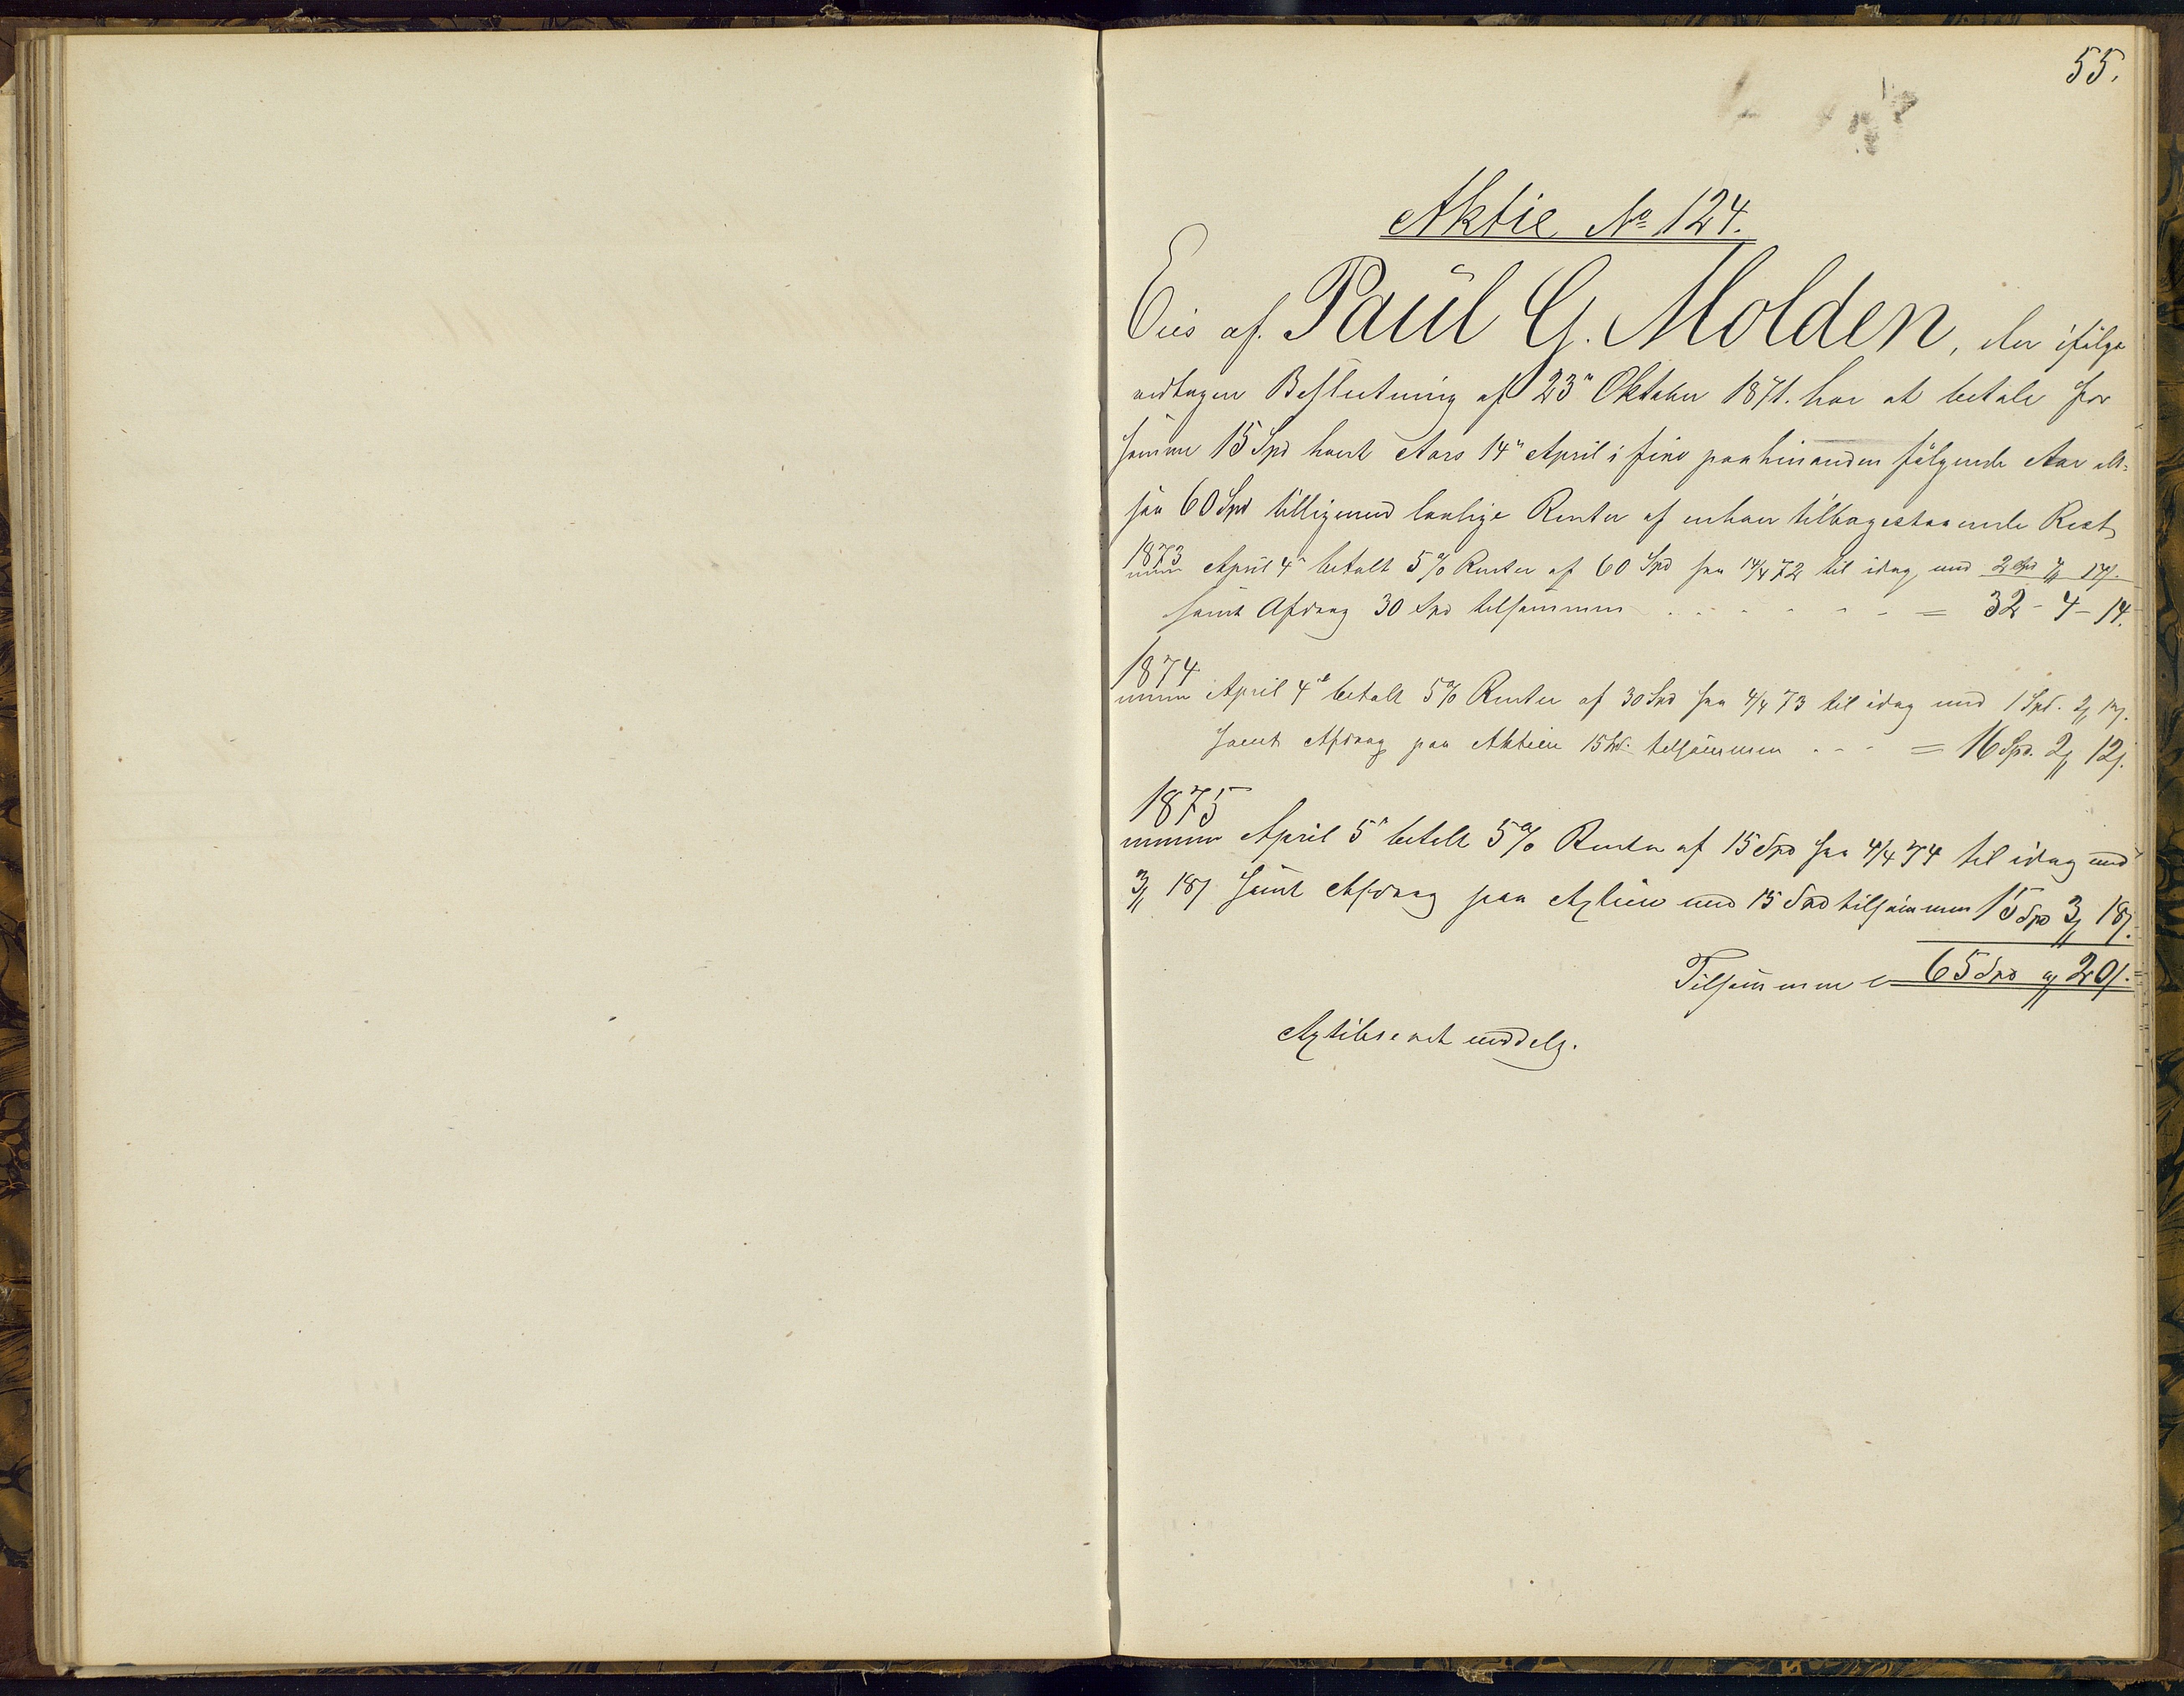 55.
Aktie No 124.
Eies af Paul G. Molden, der ifølge
vedtagen Beslutning af 23" Oktober 1871. har at betale for
samme 15 Spd hvert Aars 14" April i fire paahinanden følgende Aar alt-
saa 60 Spd tilligemed lovlige Renter af enhver tilbagestaaende Rest,
1873
April 4" betalt 5% Renter af 60 Spd fra 14/4 72 til idag, med 2 Spd 4
samt Afdrag 30 Spd tilsammen . . . . . . = 32 - 4 - 14.
1874
April 4d betalt 5% Renter af 30 Spd fra 4/4 73 til idag med 1 Spd. 2
samt Afdrag paa Aktien 15 Spd. tilsammen . . . = 16 Spd. 2 12
1875
April 5" betalt 5% Renter af 15 Spd fra 4/4 74 til idag med
3 18 samt Afdrag paa Axtien med 15 Spd tilsammen 15 Spd 3 18
Tilsammen 65 Spd 20
meddelg.